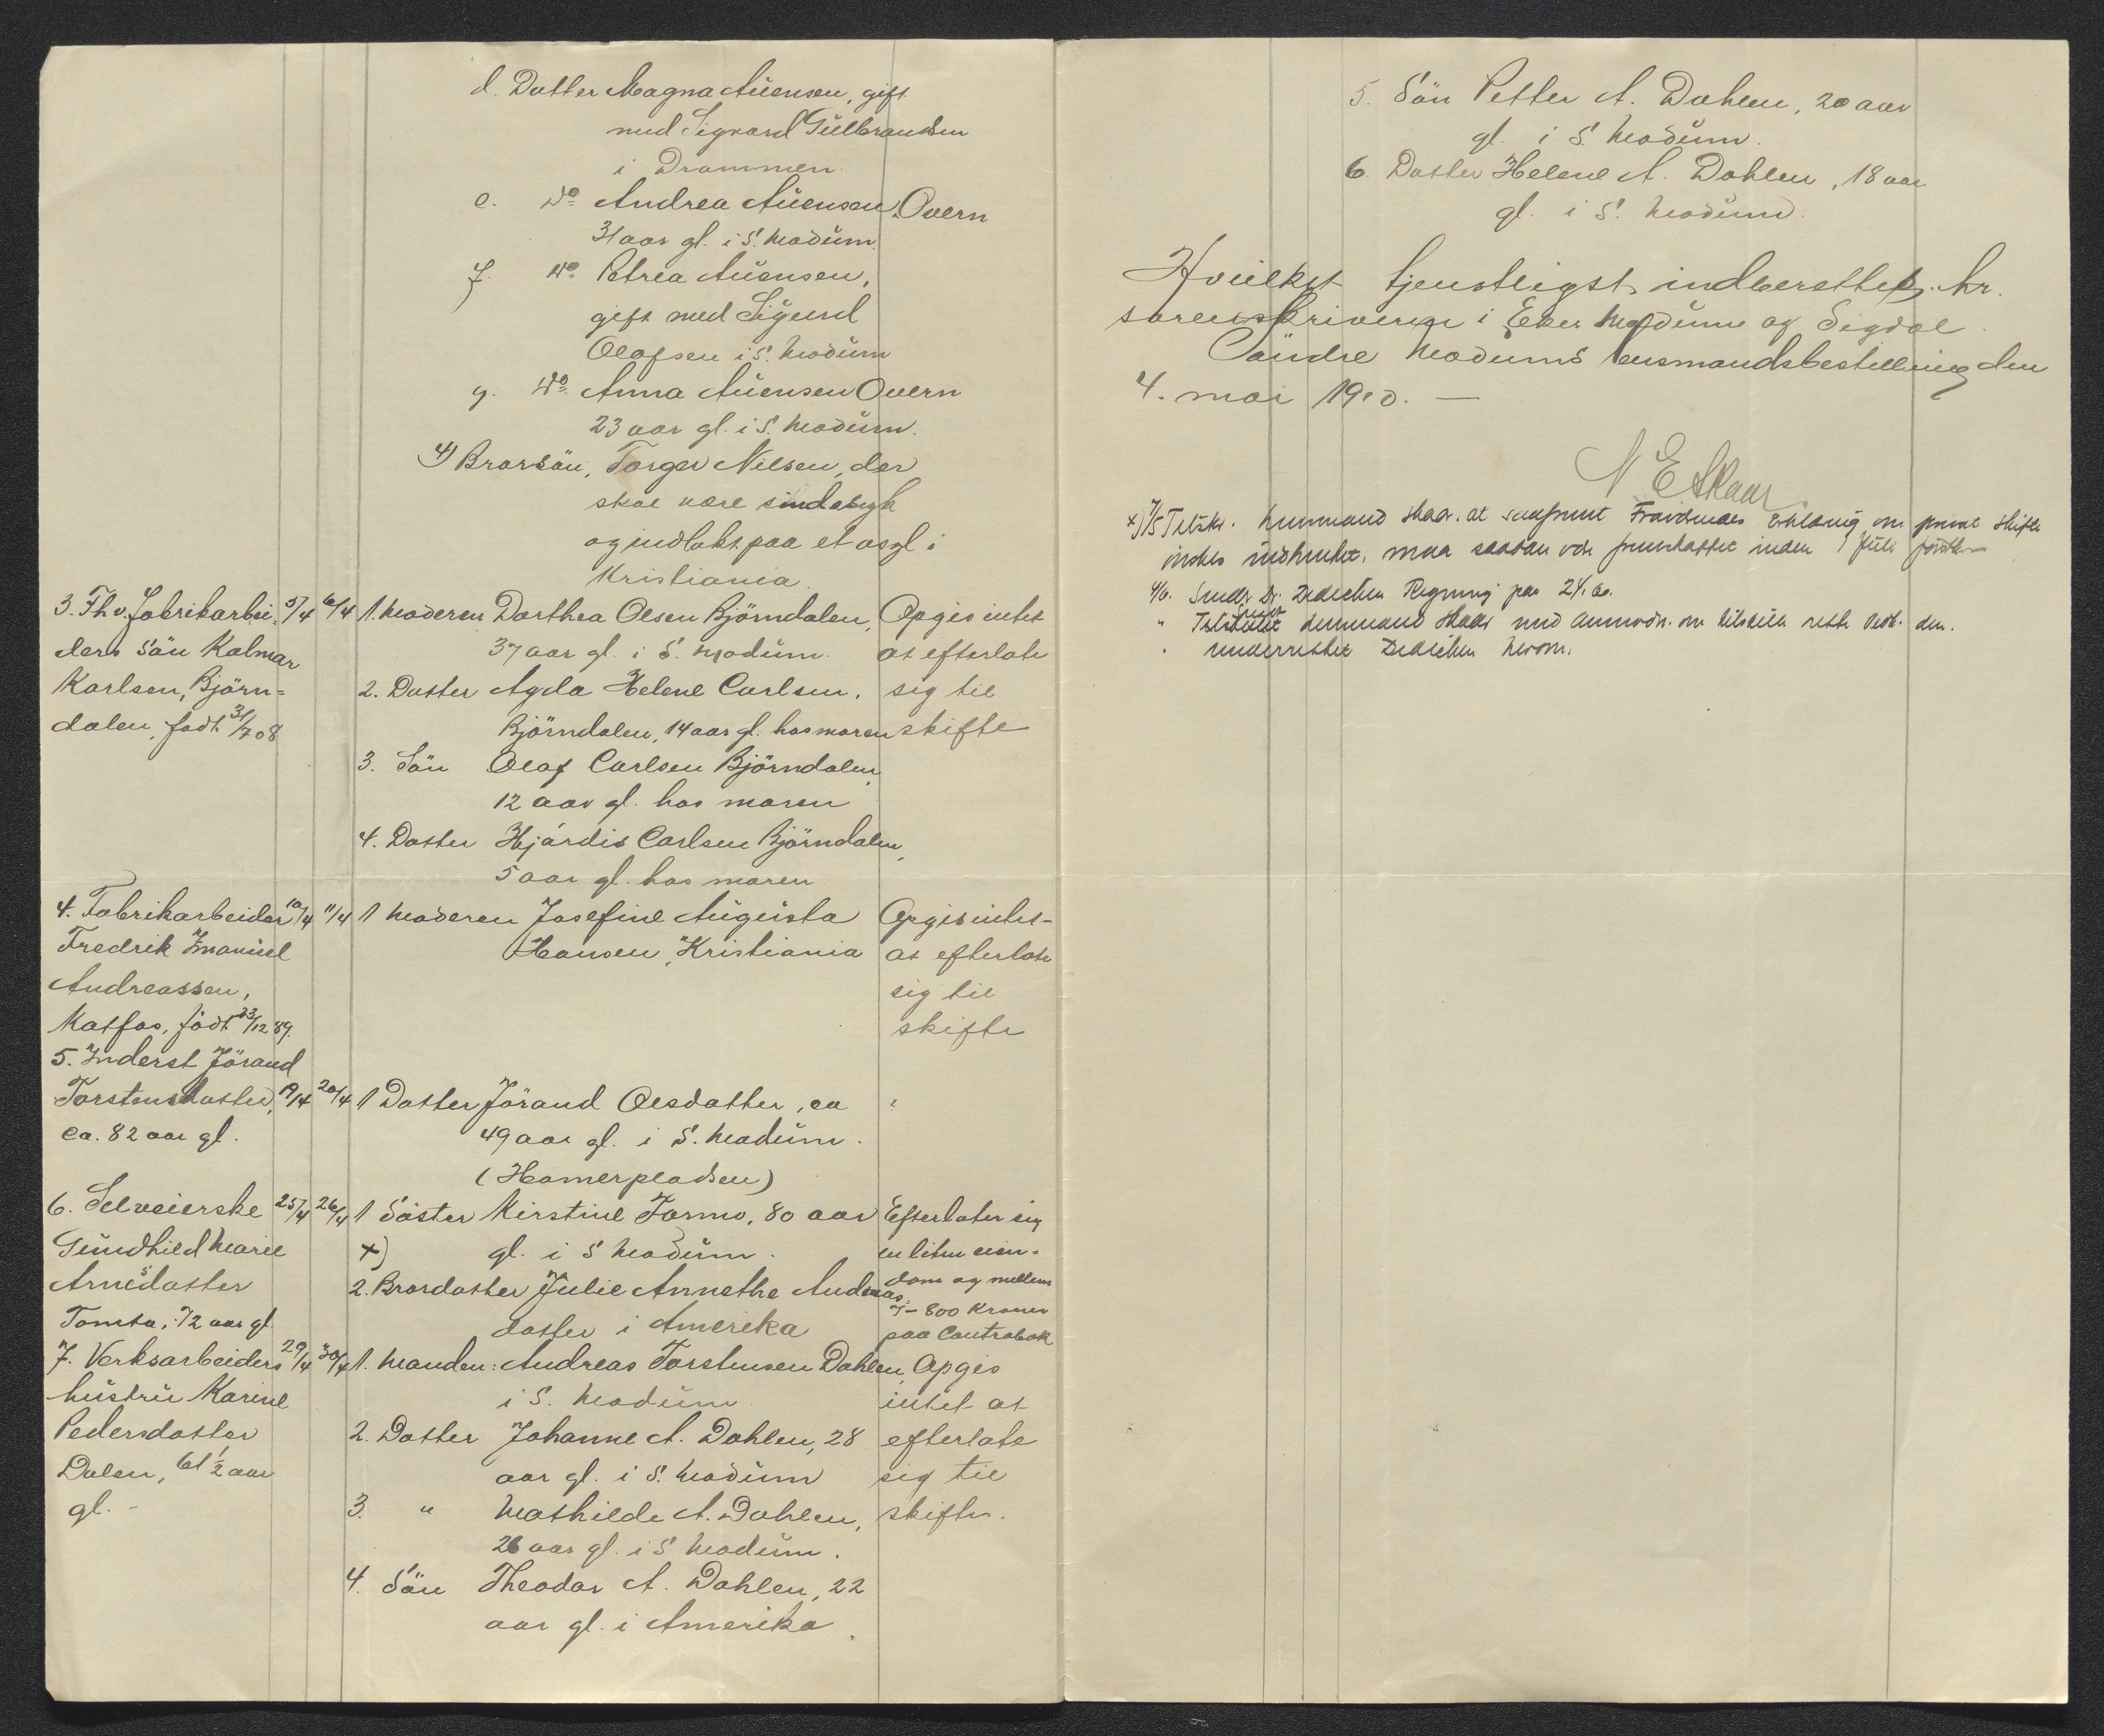 d. Datter Magna Auensen, gift
med Sigvard Gulbrandsen
i Drammen.
e. Do Andrea Auensen Overn
31 aar gl. i S. Modum.
f. Do Petrea Auensen,
gift med Sigurd
Olafsen i S. Modum
g. Do Anna Auensen Overn
23 aar gl. i S. Modum.
4) Brorsön, Torger Nilsen, der
skal være sindsbsyk
og indlakt paa et asyl i
Kristiania.
3. Fhv. fabrikarbei- 5/4 6/4 1. Moderen Dorthea Olsen Björndalen, Opgis intet
ders Sön Kalmar 37 aar gl. i S. Modum. at efterlate
Karlsen, Björn- 2. Datter Agda Helene Carlsen, sig til
dalen, født 31/7 08 Björndalen, 14 aar gl. hos moren skifte
3. Sön Olaf Carlsen Björndalen,
12 aar gl. hos moren
4. Datter Hjördis Carlsen Björndalen,
5 aar gl. hos moren
4. Fabrikarbeider 10/4 11/4 1 Moderen Josefine Augusta Opgis intet
Fredrik Imanuel Hansen, Kristiania at efterlate
Andreassen, sig til
Katfos, født 23/12 89. skifte
5. Inderst Jörand
Torstensdatter, 19/4 20/4 1 Datter Jörand Olsdatter, ca
ca. 82 aar gl. 49 aar gl. i S. Modum.
(Hamerpladsen)
6. Selveierske 25/4 26/4 1 Söster Kirstine Formo, 80 aar Efterlater sig
Gundhild Marie x) gl. i S Modum. en liten eien-
Arnesdatter 2. Brordatter Julie Annethe Andreas- dom og mellem
Tomta, 72 aar gl datter i Amerika 7-800 Kroner
paa Contrabok
7. Verksarbeiders 29/4 30/4 1. Manden: Andreas Torstensen Dahlen, Opgis
hustru Karine i S. Modum intet at
Pedersdatter 2. Datter Johanne A. Dahlen, 28 efterlate
Dalen, 61 1/2 aar aar gl. i S. Modum sig til
gl. - 3. " Mathilde A. Dahlen, skifte.
26 aar gl. i S Modum.
4. Sön Theodor A. Dahlen, 22
aar gl. i Amerika.
5. Sön Petter A. Dahlen, 20 aar
gl. i S. Modum.
6. Datter Helene A. Dahlen, 18 aar
gl. i S. Modum.
Hvilket tjenstligst indberettes hr.
sorenskriveren i Eker Modum og Sigdal
Söndre Modums lensmandsbestilling den
4. mai 1910. —
N E Skaar
x) 7/5 Tilskr. lensmand Skaar. at saafremt erklæring om privat skifte
ønskes indhentet, maa saadan inden 1 Juli
4/6. Sendt Dr. Dedichen Regning paa
" lensmand Skaar med anmodn. om
" underrettet Dedichen herom.